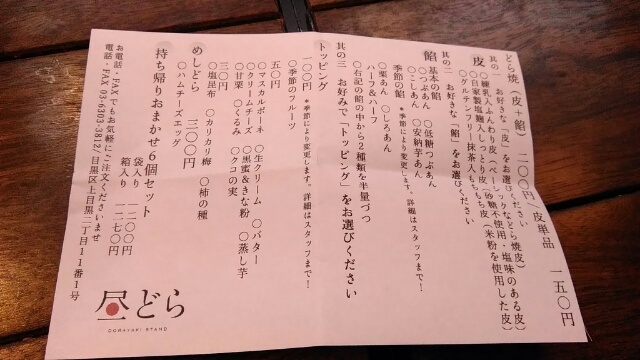 どら焼（皮＋餡）　二〇〇円　皮単品　一五〇円
其の一　お好きな「皮」をお選びください
皮
○練乳入ふんわり皮（ベーシックなどら焼皮）
○自家製塩麹入しっとり皮（砂糖不使用・塩味のある皮）
○グルテンフリー 抹茶入もちもち皮（米粉を使用した皮）
其の二　お好きな「餡」をお選びください
餡
基本の餡
○つぶあん　○低糖つぶあん
○こしあん　○安納芋あん
季節の餡　＊季節により変更します。詳細はスタッフまで！
○栗あん　○しろあん
ハーフ＆ハーフ
○右記の餡の中から２種類を半量づつ
其の三　お好みで「トッピング」をお選びください
トッピング
一〇〇円　＊季節により変更します。詳細はスタッフまで！
○季節のフルーツ
五〇円
○マスカルポーネ　○生クリーム　○バター
○クリームチーズ　○黒蜜＆きな粉　○蒸し芋
○甘栗　○くるみ　○クコの実
三〇円
○塩昆布　○カリカリ梅　○柿の種
めしどら　三〇〇円
○ハムチーズエッグ
持ち帰りおまかせ６個セット
袋入り　一二〇〇円
箱入り　一二七〇円
お電話・FAXでもお気軽にご注文くださいませ
電話・FAX 03-6303-3812/目黒区上目黒二丁目１１番１号
昼どら
DORAYAKI STAND